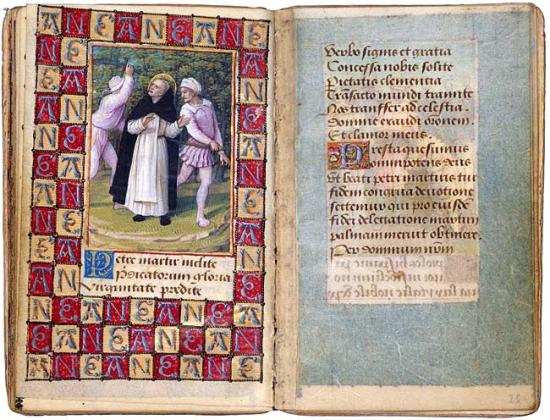 ANEANEANE
Petre martir inclite
Pdicatorum gloria
Virginitate predite
Verbo signis et gratia
Concessa nobis solite
Pietatis clementia
Transacto mundi tramite
Nos transfer ad celestia.
Domine exaudi oronem.
Et clamor meus.
Presta quesumus
omnipotens deus
Ut beati petri martiris tui
fidem congrua deuotione
sectemur qui pro eiusdem
fidei martirii
palmam meruit obtinere.
Per dominum nrm